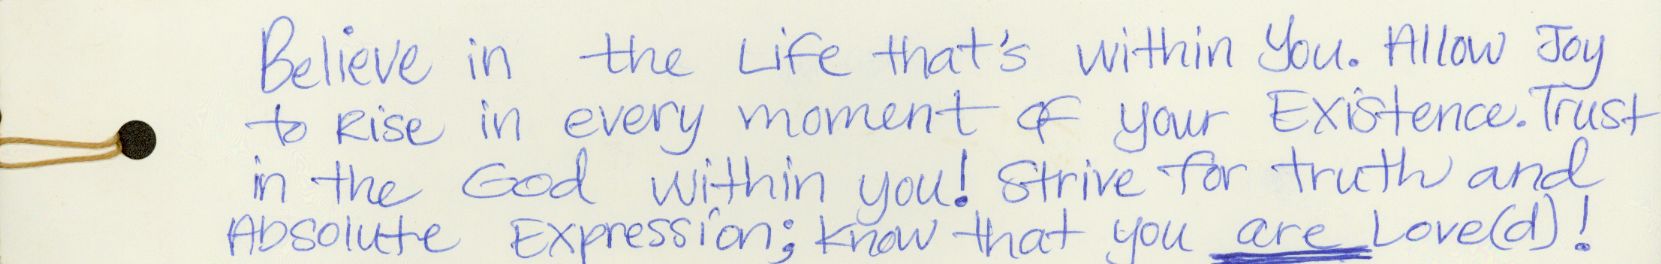 Believe in the Life that's within You. Allow Joy
to Rise in every moment of your Existence. Trust
in the God within you! Strive for truth and
Absolute Expression; know that you are Love(d)!